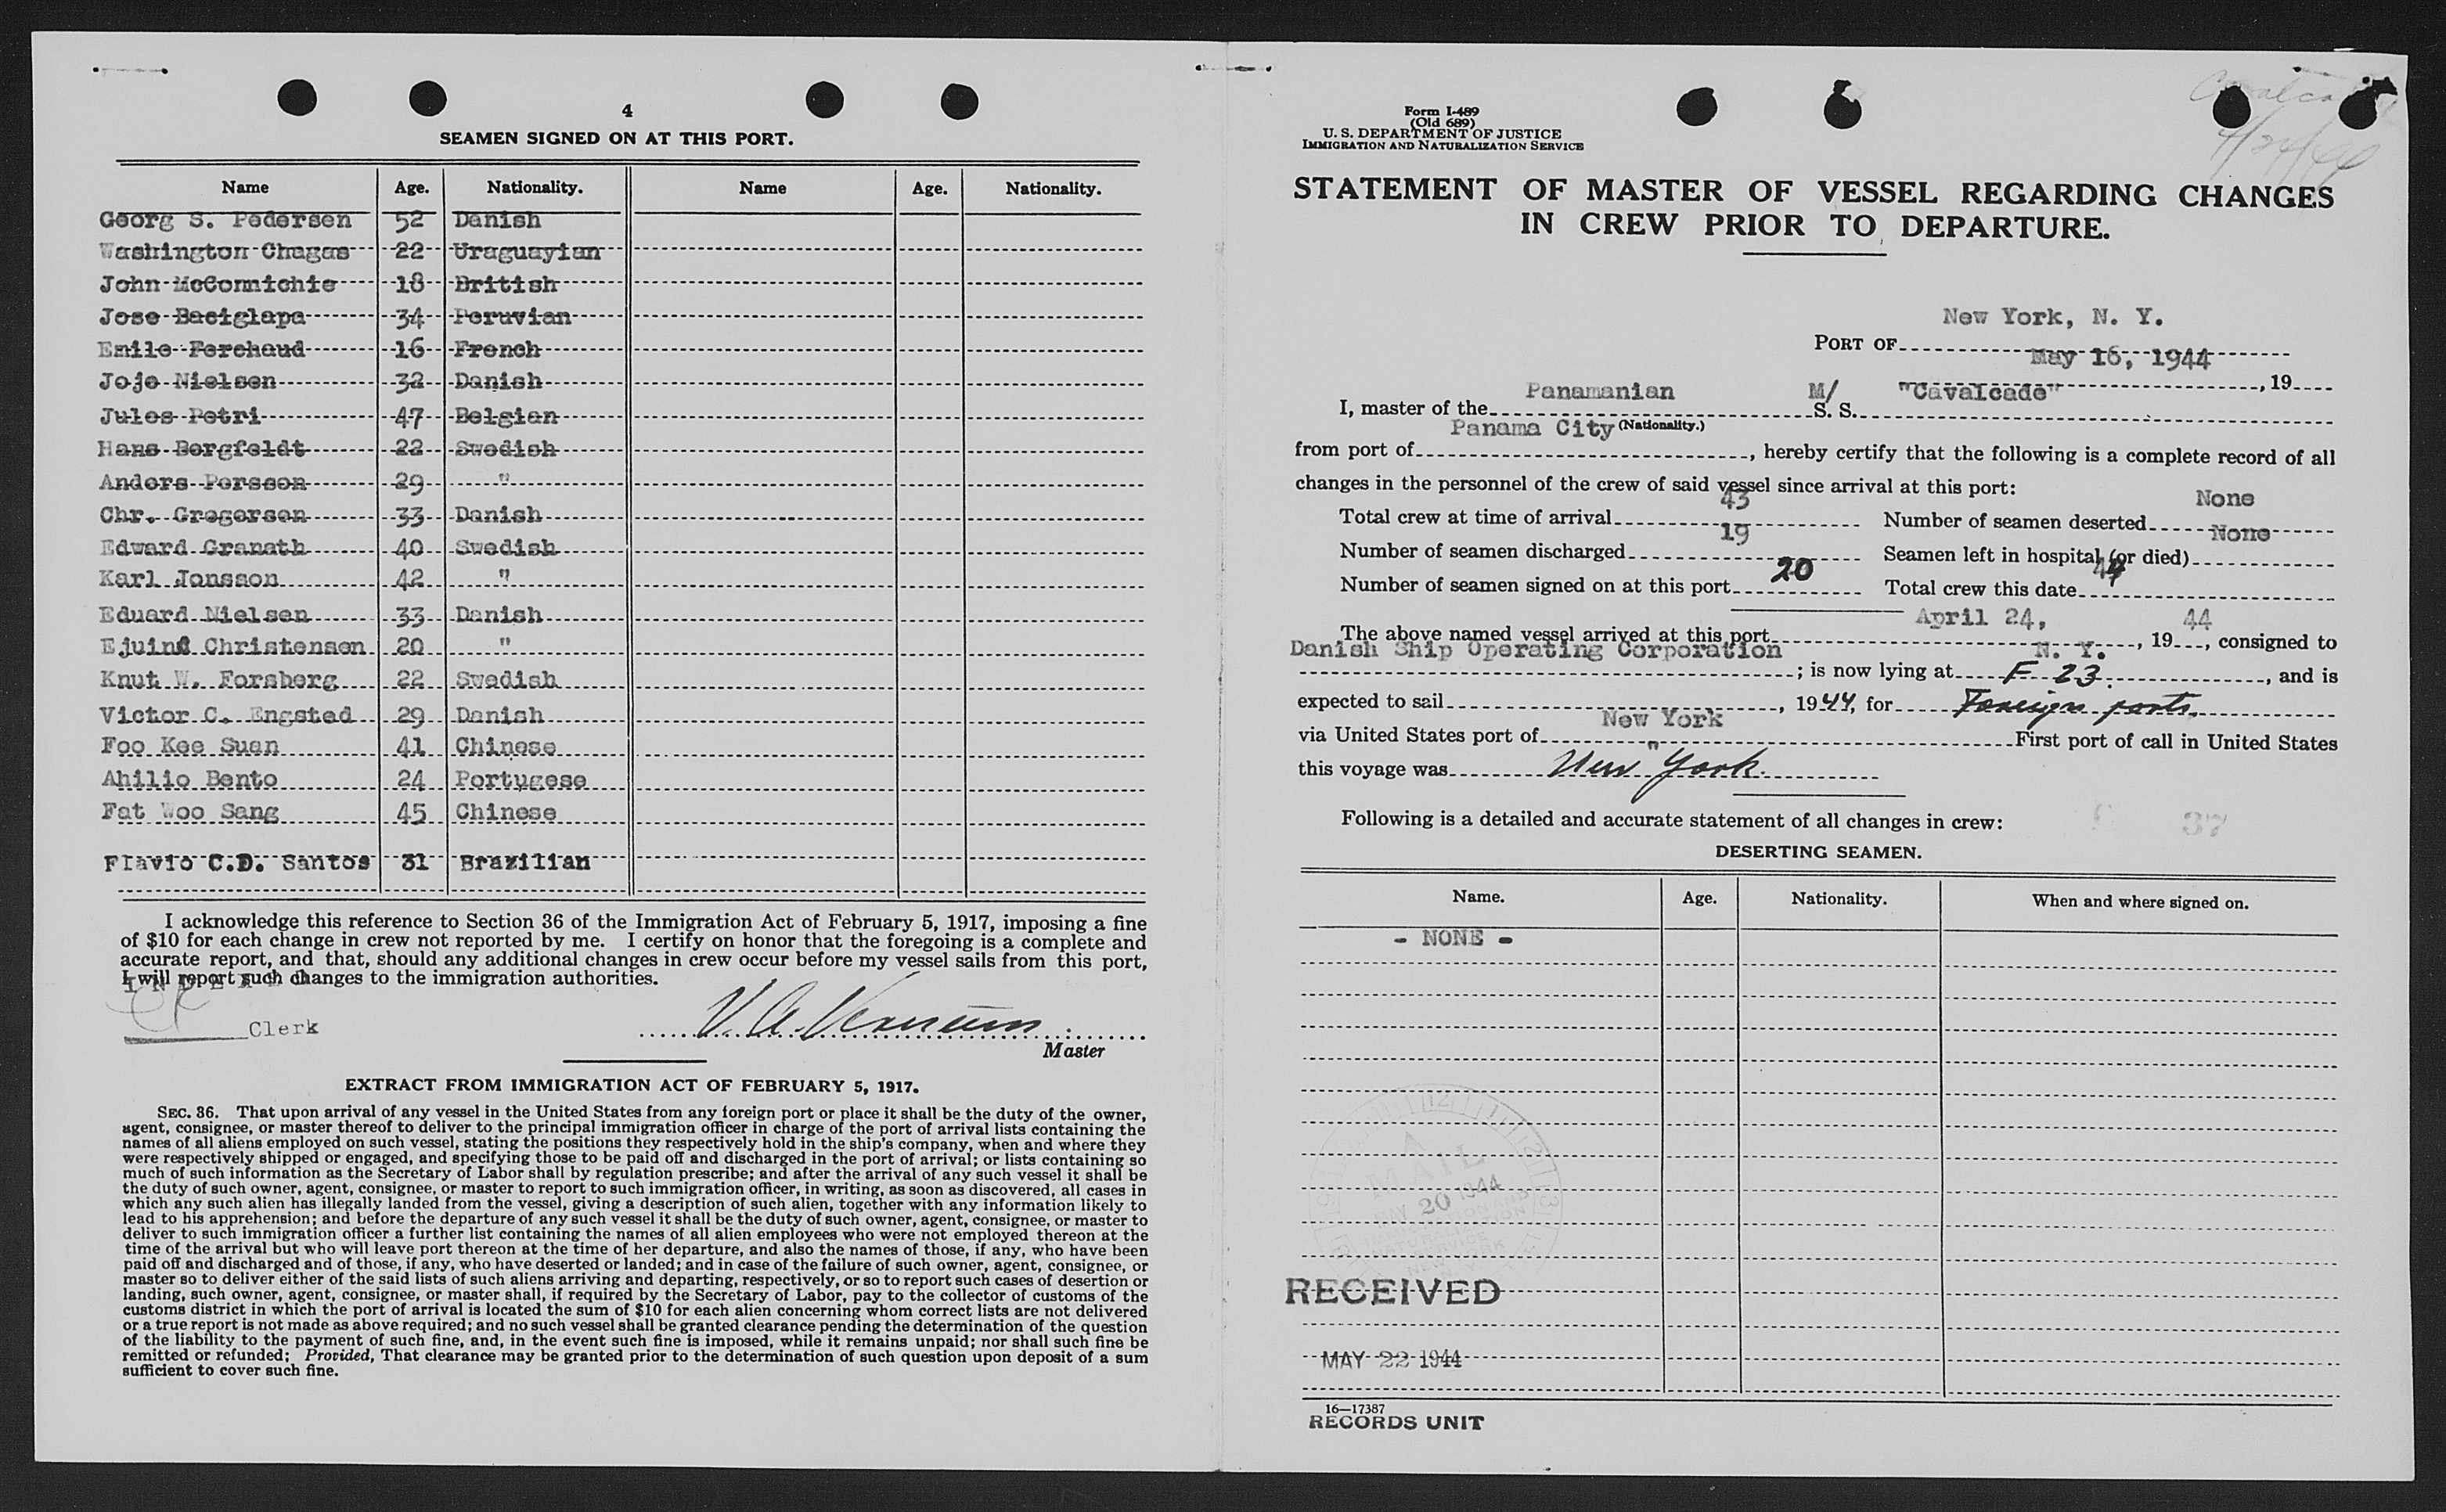 4
SEAMEN SIGNED ON AT THIS PORT.
Name Age. Nationality. Name Age. Nationality.
Georg S. Pedersen 52 Danish
Washington Chagas 22 Uraguayian
John McConnichie 18 British
Jose Baciglapa 34 Peruvian
Emile Forchaud 16 French
Jojo Nielsen 32 Danish
Jules Petri 47 Belgian
Hans Bergfeldt 22 Swedish
Anders Persson 29 "
Chr. Gregersen 33 Danish
Edward Granath 40 Swedish
Karl Jansson 42 "
Eduard Nielsen 33 Danish
Christensen 20 "
Knut W. Forsberg 22 Swedish
Victor C. Engsted 29 Danish
Foo Kee Suan 41 Chinese
Ahilio Bento 24 Portugese
Fat Woo Sang 45 Chinese
Flavio C.D. Santos 31 Brazilian
I acknowledge this reference to Section 36 of the Immigration Act of February 5, 1917, imposing a fine
of $10 for each change in crew not reported by me. I certify on honor that the foregoing is a complete and
accurate report, and that, should any additional changes in crew occur before my vessel sails from this port,
I will report such changes to the immigration authorities.
Clerk
Master
EXTRACT FROM IMMIGRATION ACT OF FEBRUARY 5, 1917.
SEC. 36. That upon arrival of any vessel in the United States from any foreign port or place it shall be the duty of the owner,
agent, consignee, or master thereof to deliver to the principal immigration officer in charge of the port of arrival lists containing the
names of all aliens employed on such vessel, stating the positions they respectively hold in the ship's company, when and where they
were respectively shipped or engaged, and specifying those to be paid off and discharged in the port of arrival; or lists containing so
much of such information as the Secretary of Labor shall by regulation prescribe; and after the arrival of any such vessel it shall be
the duty of such owner, agent, consignee, or master to report to such immigration officer, in writing, as soon as discovered, all cases in
which any such alien has illegally landed from the vessel, giving a description of such alien, together with any information likely to
lead to his apprehension; and before the departure of any such vessel it shall be the duty of such owner, agent, consignee, or master to
deliver to such immigration officer a further list containing the names of all alien employees who were not employed thereon at the
time of the arrival but who will leave port thereon at the time of her departure, and also the names of those, if any, who have been
paid off and discharged and of those, if any, who have deserted or landed; and in case of the failure of such owner, agent, consignee, or
master so to deliver either of the said lists of such aliens arriving and departing, respectively, or so to report such cases of desertion or
landing, such owner, agent, consignee, or master shall, if required by the Secretary of Labor, pay to the collector of customs of the
customs district in which the port of arrival is located the sum of $10 for each alien concerning whom correct lists are not delivered
or a true report is not made as above required; and no such vessel shall be granted clearance pending the determination of the question
of the liability to the payment of such fine, and, in the event such fine is imposed, while it remains unpaid; nor shall such fine be
remitted or refunded: Provided, That clearance may be granted prior to the determination of such question upon deposit of a sum
sufficient to cover such fine.
4/24/44
Form I-489
(Old 689)
U. S. DEPARTMENT OF JUSTICE
IMMIGRATION AND NATURALIZATION SERVICE
STATEMENT OF MASTER OF VESSEL REGARDING CHANGES
IN CREW PRIOR TO DEPARTURE.
New York, N. Y.
PORT OF
May 16, 1944
, 19
Panamanian M/ "Cavalcade"
I, master of the S. S.
Panama City (Nationality.)
from port of , hereby certify that the following is a complete record of all
changes in the personnel of the crew of said vessel since arrival at this port:
Total crew at time of arrival 43 Number of seamen deserted None
Number of seamen discharged 19 Seamen left in hospital (or died) None
Number of seamen signed on at this port 20 Total crew this date 44
The above named vessel arrived at this port April 24, , 1944, consigned to
Danish Ship Operating Corporation ; is now lying at N. Y. F 23. , and is
expected to sail , 1944, for Foreign ports.
via United States port of New York First port of call in United States
this voyage was " New York.
Following is a detailed and accurate statement of all changes in crew: 37
DESERTING SEAMEN.
Name. Age. Nationality. When and where signed on.
- NONE -
MAIL
MAY 20 1944
RECEIVED
MAY 22 1944
16—17387
RECORDS UNIT